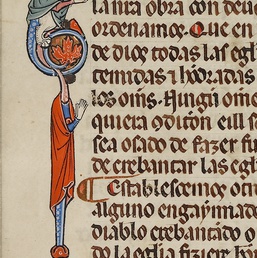 la nr̃a obra con deuo
ordenamos. Que en
de dios todas las egl
temidas ⁊ hõradas
los oms. Ningũ ome
quiera o diton eill sa
sea osado de fazer fu
de crebantar las egl
¶ Establescemos otr
alguno engaynnado
diablo crebantado o
do la eglia fiziere hom